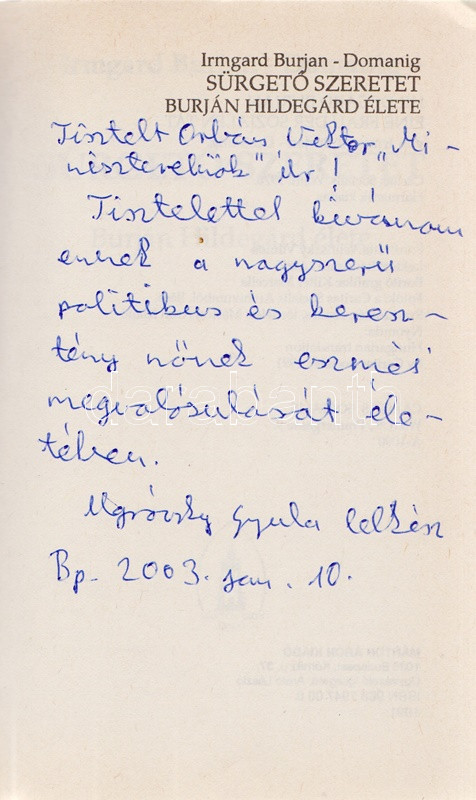 Irmgard Burjan - Domanig
SÜRGETŐ SZERETET
BURJÁN HILDEGÁRD ÉLETE
Tisztelt Orbán Viktor „Mi-
niszterelnök" Úr!
Tisztelettel kívánom
ennek a nagyszerű
politikus és keresz-
tény nőnek eszméi
megvalósulását éle-
tében.
Ugróczky Gyula lelkész
Bp. 2003. jan. 10.
darabanth